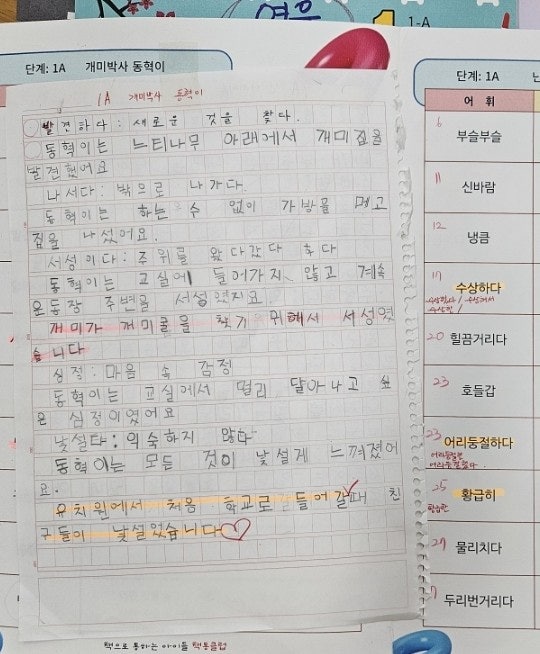 1-A
단계: 1A 개미박사 동혁이
1A 개미박사 동혁이
발견하다 : 새로운 것을 찾다.
동혁이는 느티나무 아래에서 개미집을
발견했어요
나서다 : 밖으로 나가다.
동혁이는 하는 수 없이 가방을 메고
집을 나섰어요.
서성이다 : 주위를 왔다갔다 하다
동혁이는 교실에 들어가지 않고 계속
운동장 주변을 서성였지요.
개미가 개미굴을 찾기 위해서 서성엿
습니다
심정 : 마음 속 감정
동혁이는 교실에서 멀리 달아나고 싶
은 심정이였어요
낯설다 : 익숙하지 않다
동혁이는 모든 것이 낯설게 느껴졌어
요.
유치원에서 처음 학교로 들어갈때 친
구들이 낯설었습니다
책으로 통하는 아이들 책통클럽
단계: 1A
어 휘
6 부슬부슬
11 신바람
12 냉큼
17 수상하다
20 힐끔거리다
23 호들갑
23 어리둥절하다
25 황급히
29 물리치다
두리번거리다